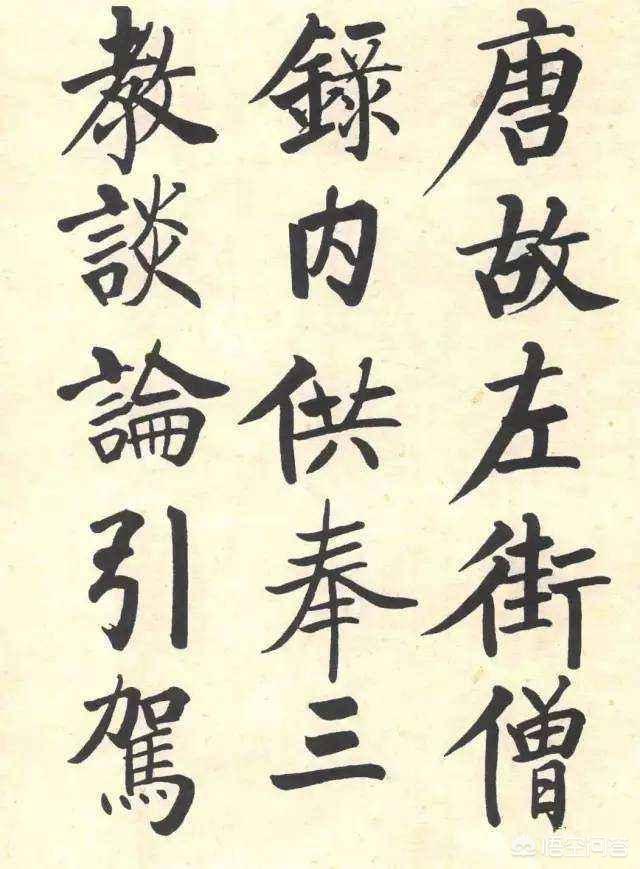 唐故左街僧
錄内供奉三
教談論引駕
悟空问答